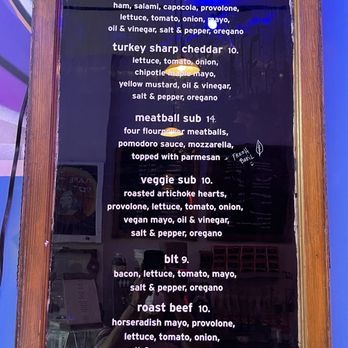 ham, salami, capocola, provolone,
lettuce, tomato, onion, mayo,
oil & vinegar, salt & pepper, oregano
turkey sharp cheddar 10.
lettuce, tomato, onion,
chipotle maple mayo,
yellow mustard, oil & vinegar,
salt & pepper, oregano
meatball sub 14.
four flour meatballs,
pomodoro sauce, mozzarella,
topped with parmesan
- Fresh
Basil
veggie sub 10.
roasted artichoke hearts,
provolone, lettuce, tomato, onion,
vegan mayo, oil & vinegar,
salt & pepper, oregano
blt 9.
bacon, lettuce, tomato, mayo,
salt & pepper, oregano
roast beef 10.
horseradish mayo, provolone,
lettuce, tomato, onion,